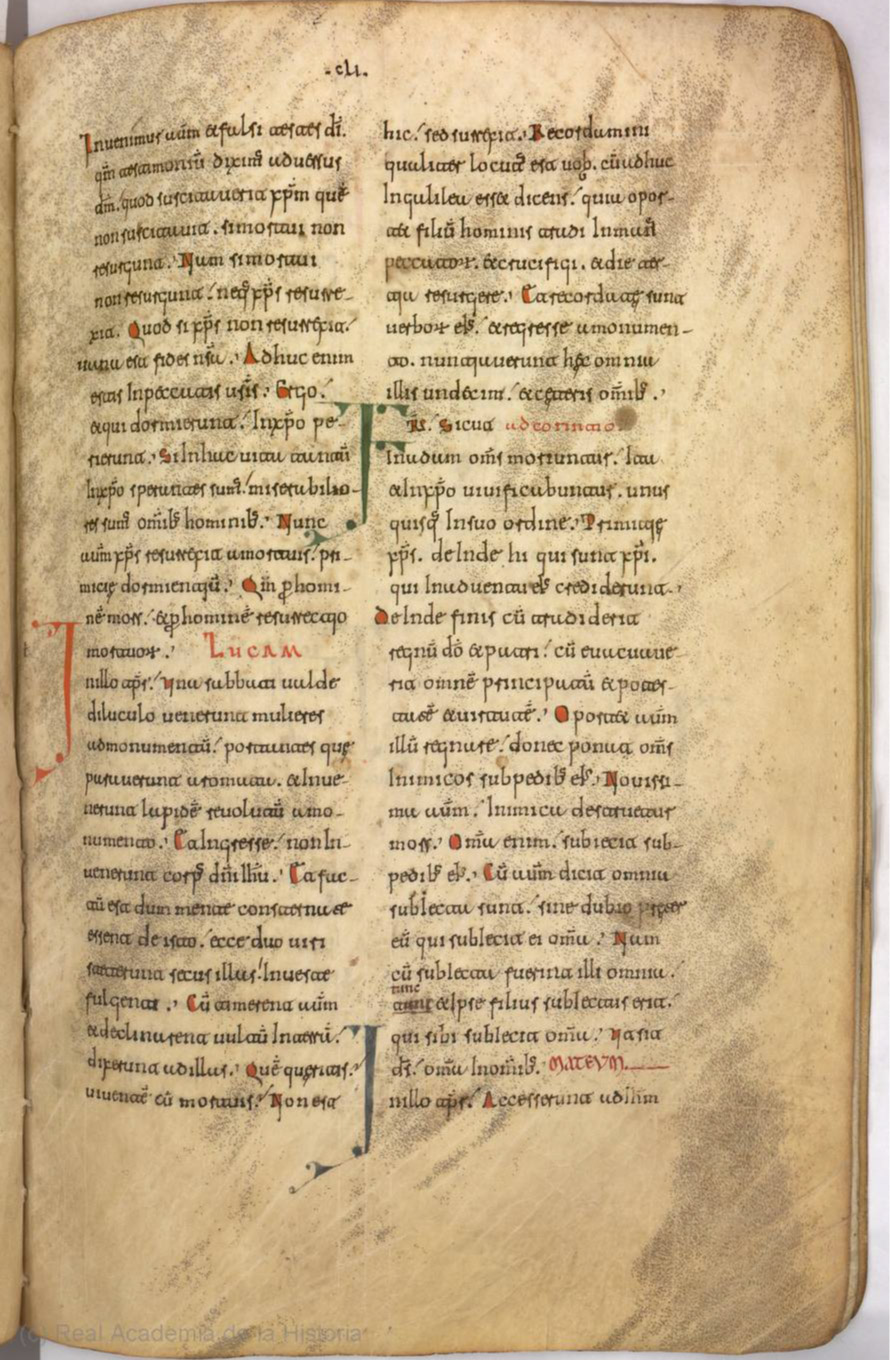 .cli.
Inuenimus aũm & falsi testes dĩ.
qm̃ testimoniũ diximꝰ aduersus
dm̃. quod suscitauerit xp̃m quẽ
non suscitauit. si mortui non
resurgunt. Nam si mortui
non resurgunt. neq; xp̃s resurre-
xit. Quod si xp̃s non resurrexit.
uana est fides ur̃a. Adhuc enim
estis In peccatis ur̃is. Ergo.
& qui dormierunt. In xp̃o pe-
rierunt. Si In hac uita tantũ
In xp̃o sperantes sumꝰ. miserabilio-
res sumꝰ omĩb; hominib;. Nunc
aũm xp̃s resurrexit a mortuis. pri-
micię dormientiũ. Qm̃ p homi-
nẽ mors. & p hominẽ resurrectio
mortuor. Lucam
n illo tp̃r. Una sabbati ualde
diluculo uenerunt mulieres
ad monumentũ. portantes quę
parauerunt aromata. & Inue-
nerunt lapidẽ reuolutũ a mo-
numento. Et Ingresse. non In-
uenerunt corpꝰ dñi ihũ. Et fac-
tũ est dum mente consternate
essent de isto. ecce duo uiri
steterunt secus illas. In ueste
fulgenti. Cũ timerent aũm
& declinarent uultũ In terrã.
dixerunt ad illas. Quẽ queritis.
uiuentẽ cũ mortuis. Non est
hic. sed surrexit. Recordamini
qualiter locutꝰ est uob. cũ adhuc
In galilea esset dicens. quia opor-
tet filiũ hominis tradi In manꝰ
peccator. & crucifigi. & die ter-
tia resurgere. Et recordate sunt
uerbor eiꝰ. & regresse a monumen-
to. nuntiauerunt hęc omnia
illis undecim. & ceteris omĩb;.
Fr̃. Sicut ad corintio
In adam omꝰ moriuntur. Ita
& In xp̃o uiuificabuntur. unus
quisq; In suo ordine. Primitię
xp̃s. deInde hi qui sunt xp̃i.
qui In aduentu eiꝰ crediderunt.
DeInde finis cũ tradiderit
regnũ dõ & patri. cũ euacuaue-
rit omnẽ principatũ & potes-
tatẽ & uirtutẽ. Oportet aũm
illũ regnare. donec ponat omꝰ
Inimicos sub pedib; eiꝰ. Nouissi-
ma aũm. Inimica destruetur
mors. Omĩa enim. subiecit sub
pedib; eiꝰ. Cũ aũm dicit omnia
subIecta sunt. sine dubio preter
eũ qui subIecit ei omĩa. Nam
cũ subIecta fuerint illi omnia.
tunc
tunc & Ipse filius subIectus erit.
qui sibi subIecit omĩa. Ut sit
dꝰ. omĩa In omĩb;. MATEVM
n illo tp̃r. Accesserunt ad ihm̃
(c) Real Academia de la Historia